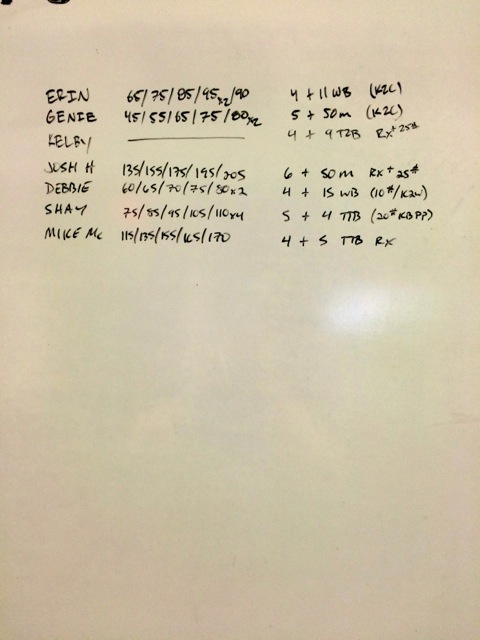 ERIN 65/75/85/95x2/90 4 + 11 WB (K2C)
GENIE 45/55/65/75/80x2 5 + 50m (K2C)
KELBY 4 + 9 T2B Rx+25#
JOSH H 135/155/175/195/205 6 + 50m Rx+25#
DEBBIE 60/65/70/75/80x2 4 + 15 WB (10#/K2W)
SHAY 75/85/95/105/110x4 5 + 4 TTB (20# KBPP)
MIKE Mc 115/135/155/165/170 4 + 5 TTB Rx